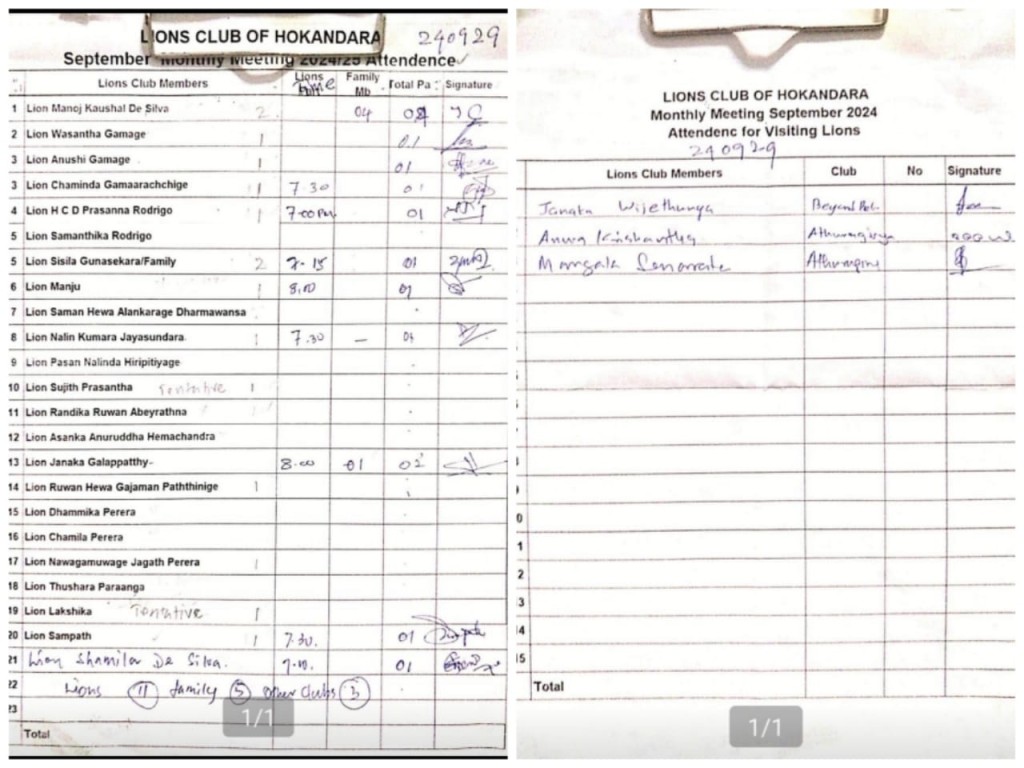 LIONS CLUB OF HOKANDARA 240929
September Monthly Meeting 2024/25 Attendence
Lions Club Members Lions Time Family Mb Total Pa Signature
1 Lion Manoj Kaushal De Silva 2 04
2 Lion Wasantha Gamage 1 01
3 Lion Anushi Gamage 1 01
3 Lion Chaminda Gamaarachchige 1 7.30 01
4 Lion H C D Prasanna Rodrigo 1 7.00 Pm 01
5 Lion Samanthika Rodrigo
5 Lion Sisila Gunasekara/Family 2 01
6 Lion Manju 1 8.00 01
7 Lion Saman Hewa Alankarage Dharmawansa
8 Lion Nalin Kumara Jayasundara 1 7.30 –
9 Lion Pasan Nalinda Hiripitiyage
10 Lion Sujith Prasantha Tentative 1
11 Lion Randika Ruwan Abeyrathna
12 Lion Asanka Anuruddha Hemachandra
13 Lion Janaka Galappatthy 8.00 01 02
14 Lion Ruwan Hewa Gajaman Paththinige 1
15 Lion Dhammika Perera
16 Lion Chamila Perera
17 Lion Nawagamuwage Jagath Perera 1
18 Lion Thushara Paraanga
19 Lion Lakshika Tentative 1
20 Lion Sampath 1 7.30. 01
21 Lion De Silva. 01
22 Lions 11 family 5 other clubs 3
23
Total
1/1
LIONS CLUB OF HOKANDARA
Monthly Meeting September 2024
Attendenc for Visiting Lions
240929
Lions Club Members Club No Signature
Janaka Wijethunga
Krishantha
Mangala
0
1
2
3
4
5
Total
1/1